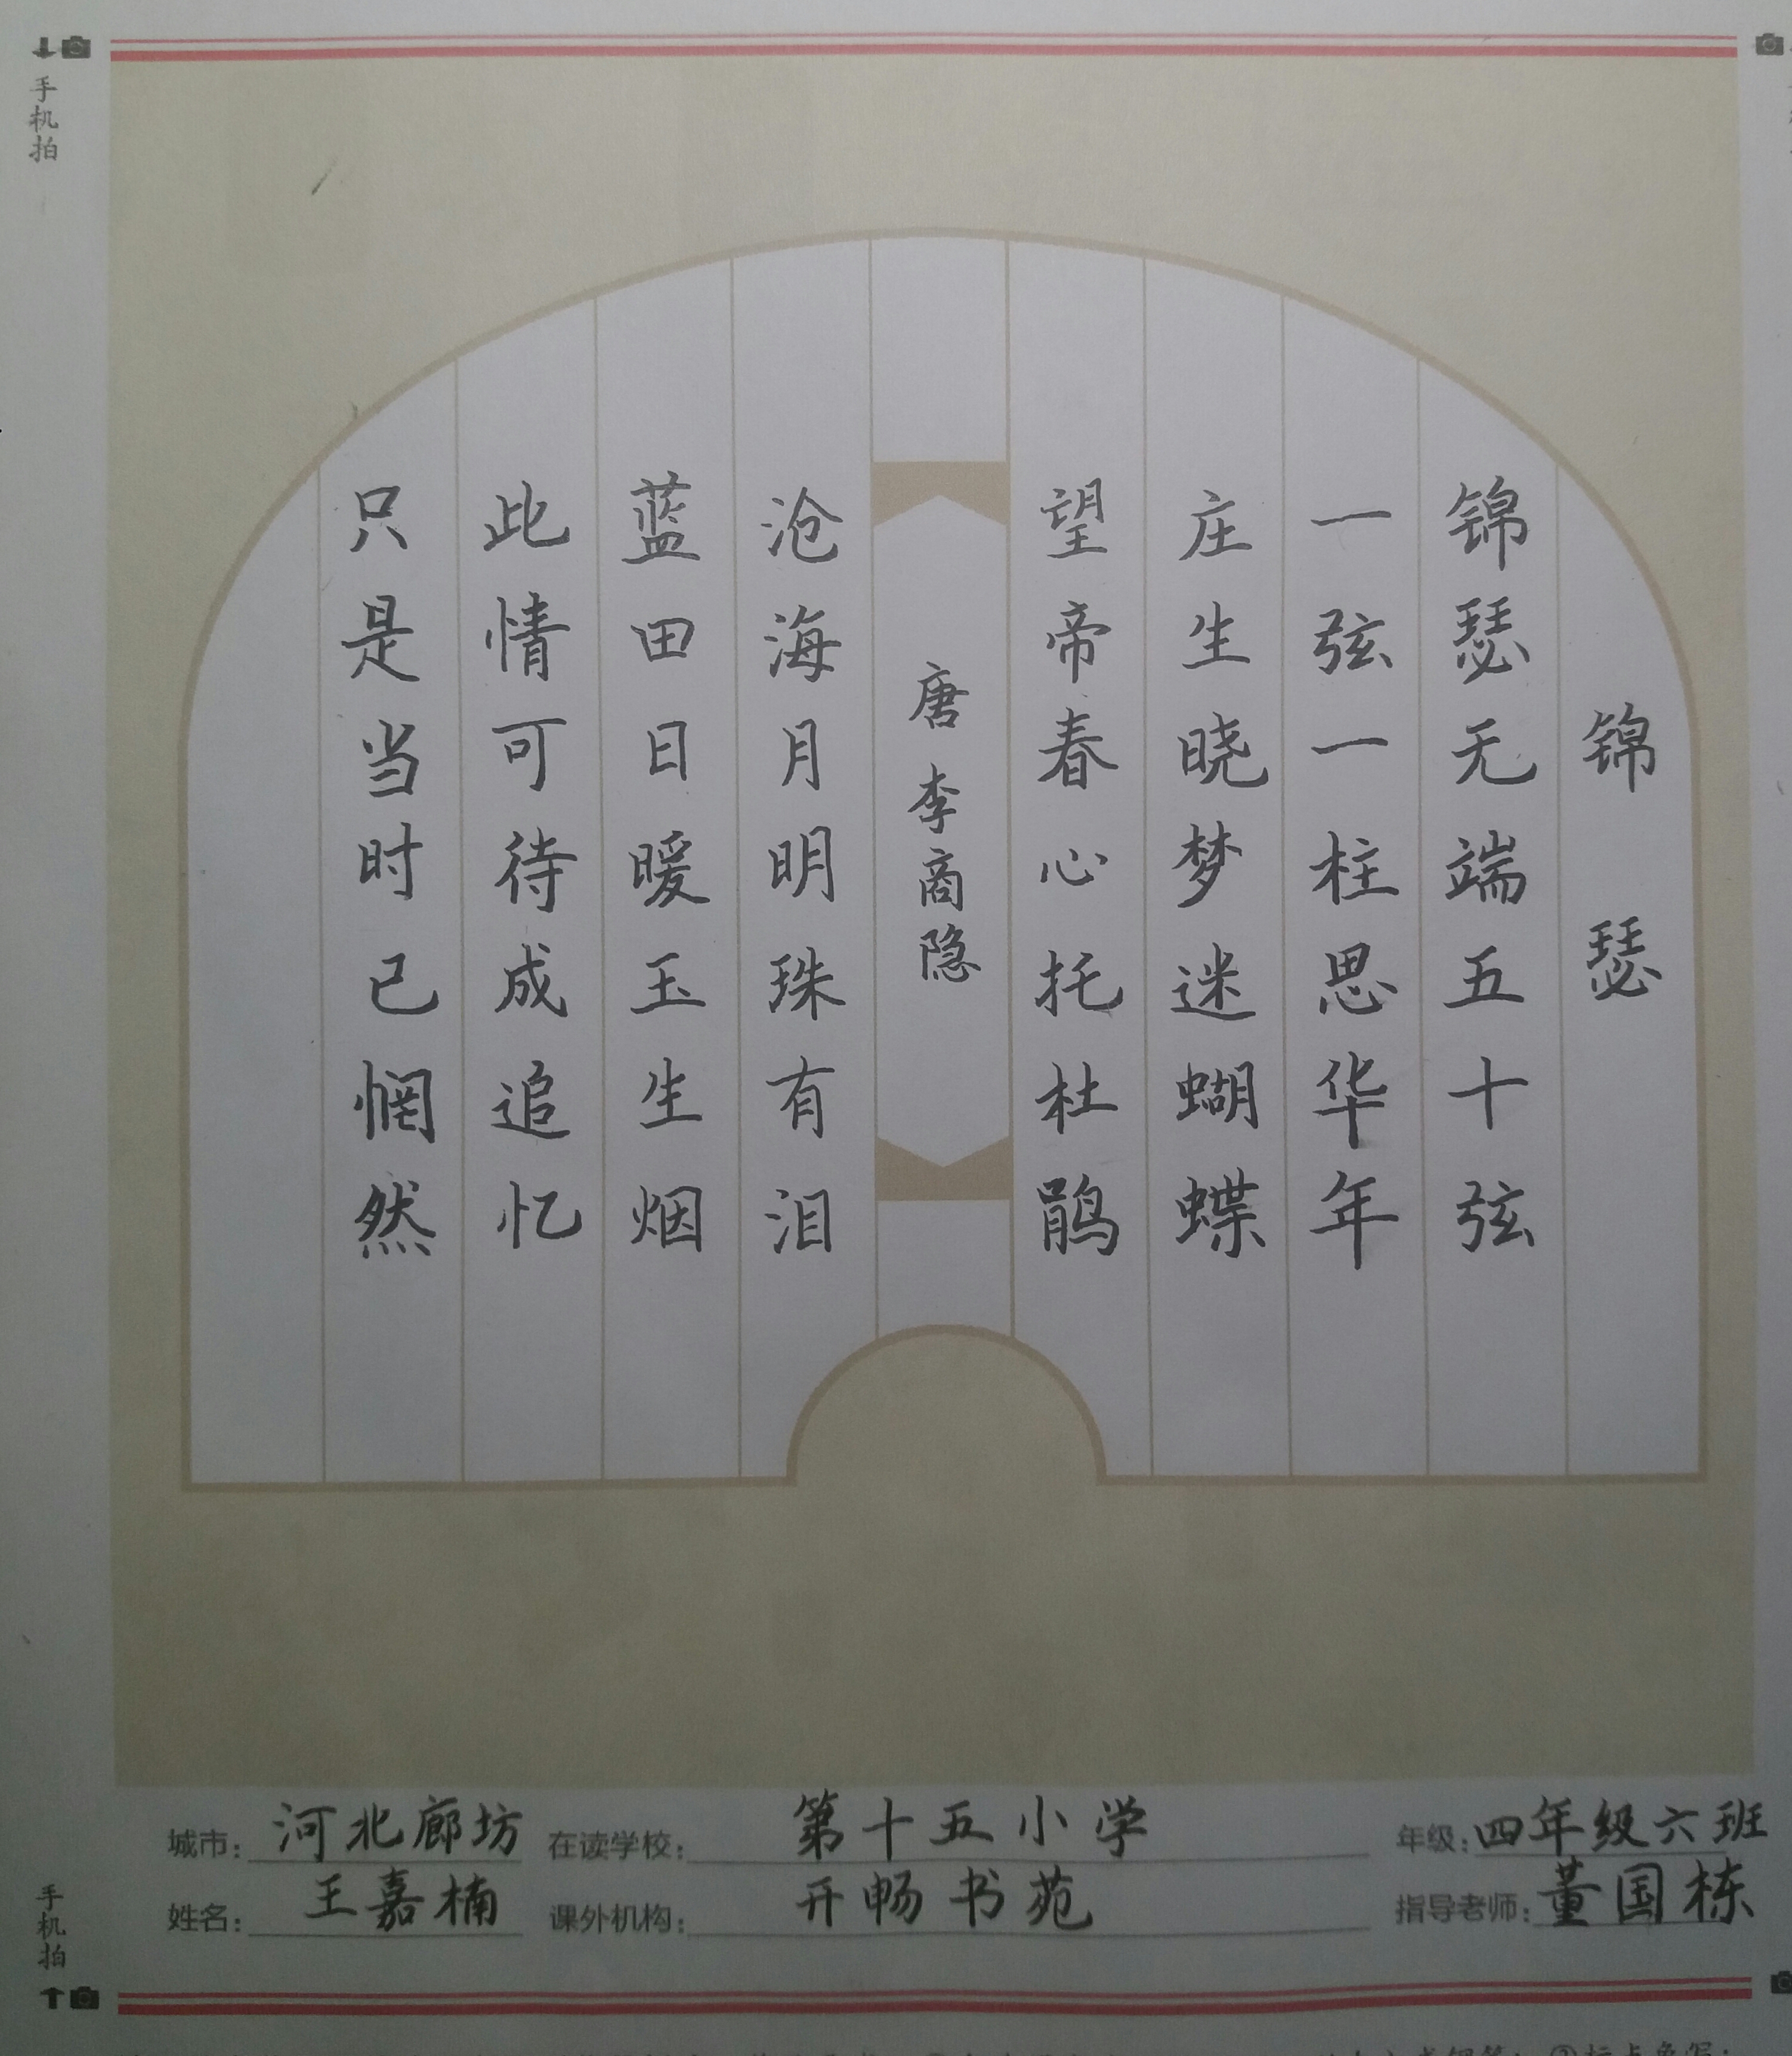 手机拍
锦瑟
锦瑟无端五十弦
一弦一柱思华年
庄生晓梦迷蝴蝶
望帝春心托杜鹃
唐 李商隐
沧海月明珠有泪
蓝田日暖玉生烟
此情可待成追忆
只是当时已惘然
城市: 河北廊坊 在读学校: 第十五小学 年级: 四年级六班
姓名: 王嘉楠 课外机构: 开畅书苑 指导老师: 董国栋
手机拍